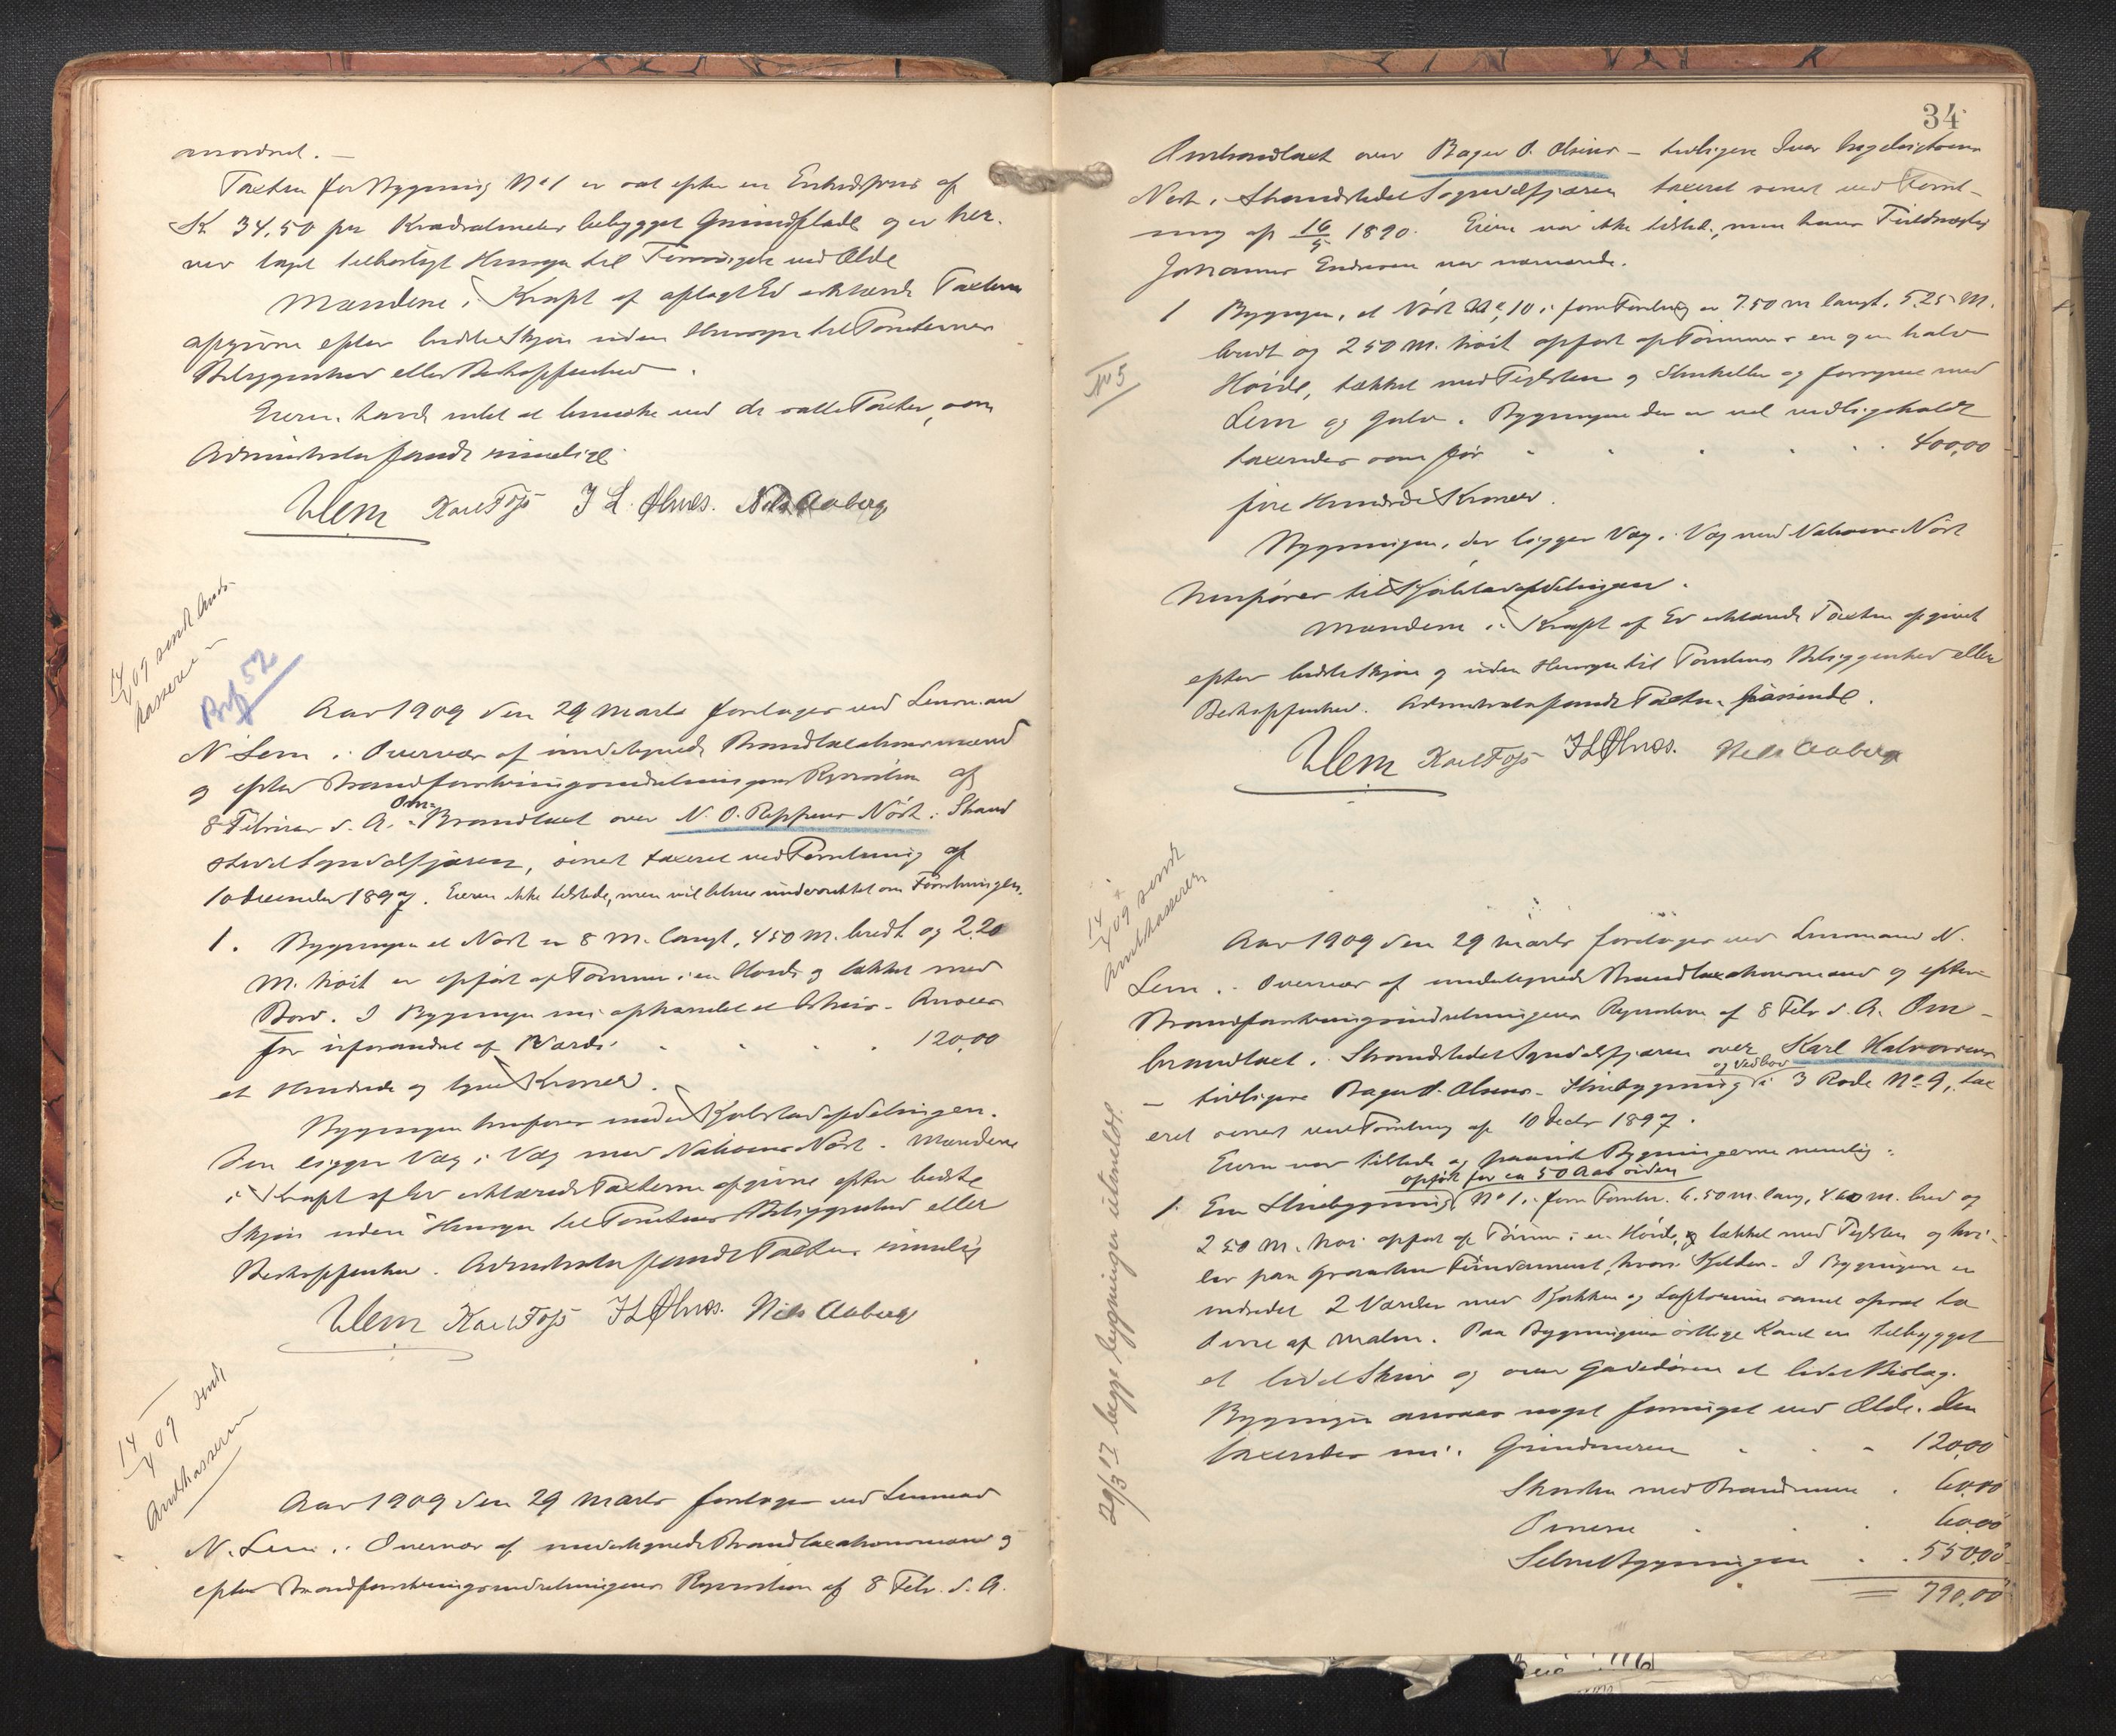 anordnet. —
Taxten for Bygning No 1 er sat efter en Enhedspris af
Kr 34,50 pr Kvadratmeter bebygget Grundflade og er her-
ved taget tilbørligt Hensyn til Forringelse ved Ælde
Mændene i Kraft af aflagt Ed erklærede Taxterne
afgivne efter bedste Skjøn uden Hensyn til Tomternes
Beliggenhed eller Beskaffenhed.
Eieren havde intet at bemærke ved de satte Taxter, som
Administrator fandt rimelige.
NLem Karl Foss I L Ølnes. Nils Aaberg
14/4 09 sendt Amts-
kasseren
Bef 52
Aar 1909 den 29 Marts foretoges ved Lensmand
N Lem i Overvær af undertegnede Brandtaxationsmænd
og efter Brandforsikringsindretningens Rekvisition af
8 Februar d. A. Om-Brandtaxt over N. O. Reppens Nøst i Strand
stedet Sogndalsfjæren, sidst taxeret ved Forretning af
10 December 1897. Eieren ikke tilstede, men vil blive underrettet om Forretningen.
1. Bygningen et Nøst er 8 M. langt, 450 M. bredt og 2.20
M. høit er opført af Tømmer i en Høide og tækket med
Bord. I Bygningen
for uforandret af Værdi 120,00
et Hundrede og tyve Kroner.
Bygningen henføres under Kjøbstadafdelingen.
Den ligger Væg i Væg med Naboens Nøst. Mændene
i Kraft af Ed erklærede Taxterne afgivne efter bedste
Skjøn uden Hensyn til Tomtens Beliggenhed eller
Beskaffenhed. Administrator fandt Taxten rimelig
NLem Karl Foss I L Ølnes. Nils Aaberg
14/4 09 sendt
Amtkasseren
Aar 1909 den 29 Marts foretoges ved Lensmand
N. Lem i Overvær af undertegnede Brandtaxationsmænd og
efter Brandforsikringsindretningens Rekvisition af 8 Febr. d. A.
34
Ombrandtaxt over Bager O. Olsens — tidligere Ivar
Nøst i Strandstedet Sogndalsfjæren taxeret senest ved Forret-
ning af 16/5 1890. Eieren var ikke tilstede, men hans Fuldmægtig
Johannes Endresen var nærværende.
No 5
1 Bygningen, et Nøst No 10 i forr Forretning er 7.50 m langt, 5.25 M.
bredt og 250 M. høit opført af Tømmer i en og en halv
Høide, tækket med Teglsten og Stenheller og forsynet med
Lem og Gulv. Bygningen der er vel vedligeholdt
taxeredes som før 400,00
fire Hundrede Kroner.
Bygningen, der ligger Væg i Væg med Naboens Nøst
henføres til Kjøbstadafdelingen.
Mændene i Kraft af Ed erklærede Taxten afgivet
efter bedste Skjøn og uden Hensyn til Tomtens Beliggenhed eller
Beskaffenhed. Administrator fandt Taxten passende.
NLem Karl Foss I L Ølnes. Nils Aaberg
14/4 09 sendt
Amtkasseren
Aar 1909 den 29 Marts foretoges ved Lensmand N.
Lem i Overvær af undertegnede Brandtaxationsmænd og efter
Brandforsikringsindretningens Rekvisition af 8 Febr d. A. Om-
brandtaxt i Strandstedet Sogndalsfjæren over Karl Halvorsens
— tidligere Bager O. Olsens — Stuebygning og Vedbod i 3 Rode No 9, tax
eret senest ved Forretning af 10 Decbr 1897.
Eieren var tilstede og paaviste Bygningerne nemlig:
opført for ca 50 Aar siden
1. En Stuebygning No 1 i forr Forretn. 6.50 m. lang, 4.60 m. bred og
2 50 M. høi opført af Tømmer i en Høide, og tækket med Teglsten og hvi-
ler paa Graasten Fundament, hvori Kjelder. I Bygningen er
indredet 2 Værelser med Kjøkken og Loftsrum samt opsat to
Ovne af Malm. Paa Bygningens østlige Kant er tilbygget
et lidet Skur og over Gadedøren et lidet Bislag.
Bygningen ansees noget forringet ved Ælde. Den
taxeredes nu: Grundmuren 120,00
Skorsten med Brandmure 60,00
Ovnene 60,00
Selve Bygningen 550,00
= 790,00
29/3 17 begge bygninger utmeldt.